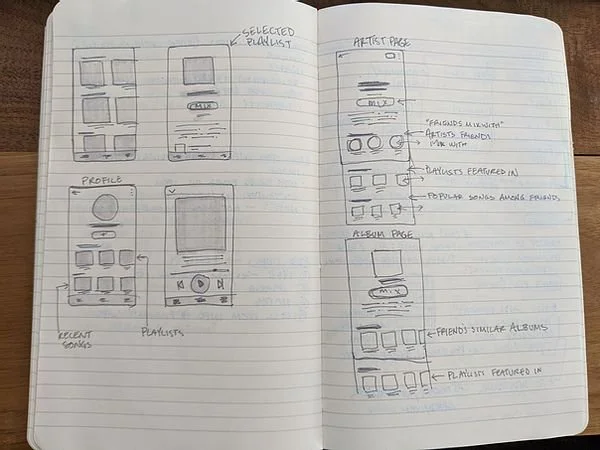 SELECTED
PLAYLIST
MIX
PROFILE
RECENT
SONGS
PLAYLISTS
ARTIST PAGE
MIX
"FRIENDS MIX WITH"
ARTISTS FRIENDS
MIX WITH
PLAYLISTS FEATURED IN
POPULAR SONGS AMONG FRIENDS
ALBUM PAGE
MIX
FRIEND'S SIMILAR ALBUMS
PLAYLISTS FEATURED IN